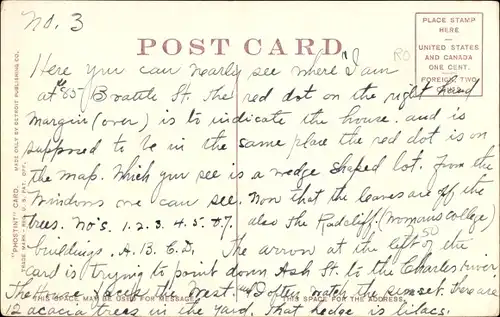 No. 3
POST CARD
RO
PLACE STAMP
HERE
UNITED STATES
AND CANADA
ONE CENT.
FOREIGN, TWO
"PHOSTINT" CARD. MADE ONLY BY DETROIT PUBLISHING CO.
TRADE MARK REG. U. S. PAT. OFF.
Here you can nearly see where "I am
at #85" Brattle St. The red dot on the right hand
margin (over) is to indicate the house. and is
supposed to be in the same place the red dot is on
the map. Which you see is a wedge shaped lot. From the
Windows one can see. Now that the leaves are off the
trees. No's. 1. 2. 3. 4. 5. & 7. also the Radcliff (Womans college)
buildings. A. B. C. D. The arrow at the left of the
7,50
card is trying to point down Ash St. to the Charles river
The House faces the West. and I often watch the sunset. There are
THIS SPACE MAY BE USED FOR MESSAGE.
THIS SPACE FOR THE ADDRESS.
12 acacia trees in the yard. That hedge is lilacs.